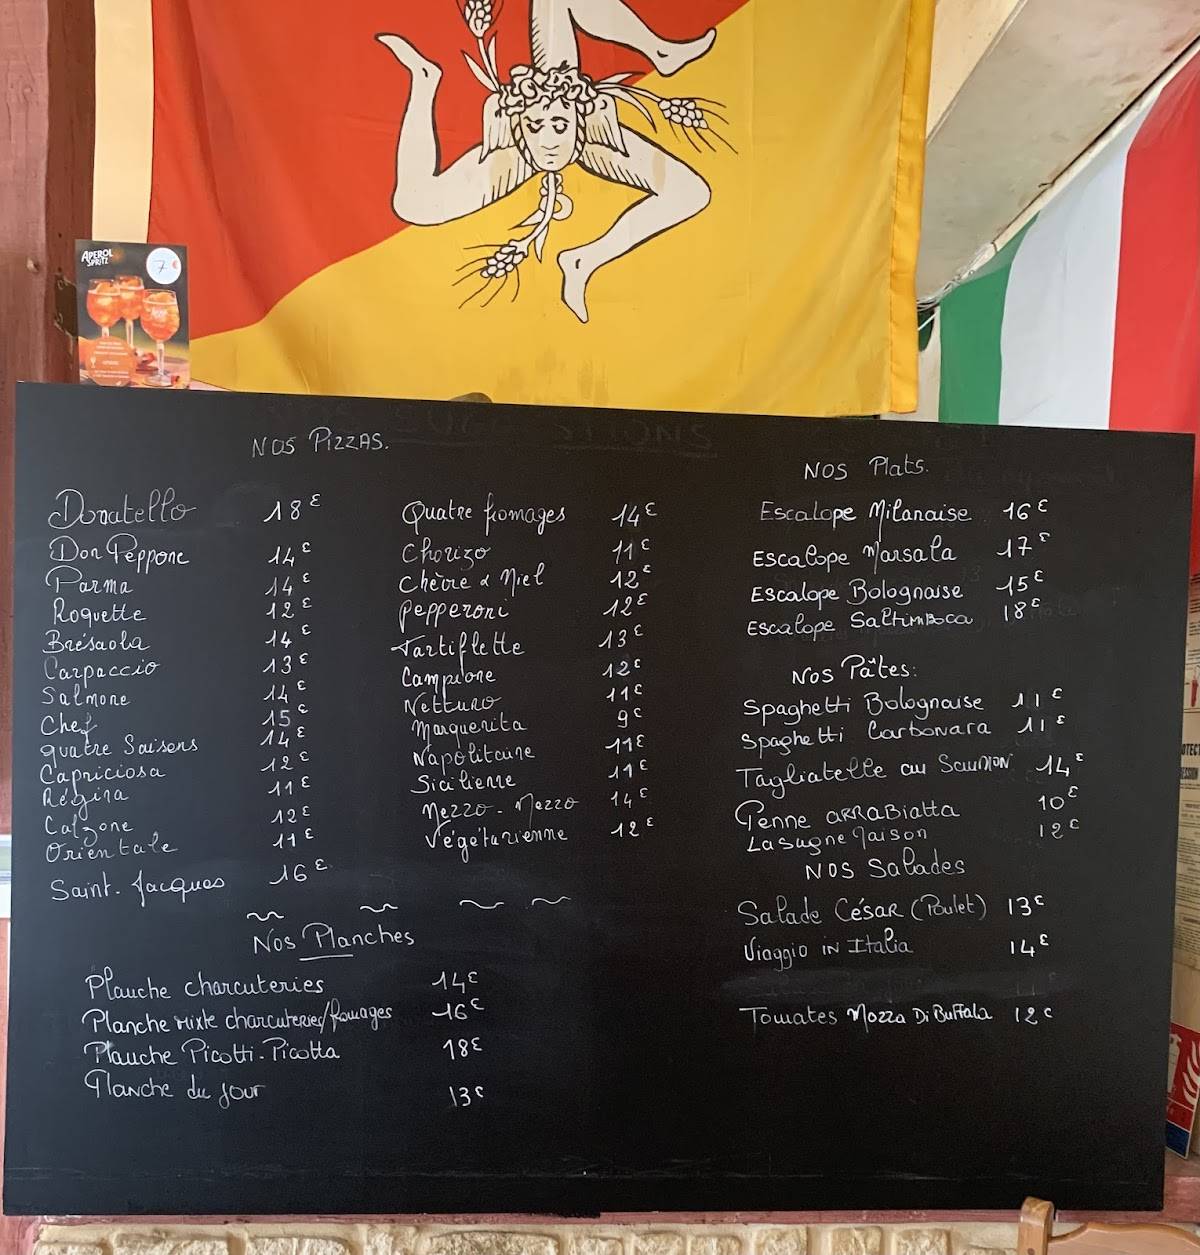 APEROL
SPRITZ
7€
NOS PIZZAS.
Donatello 18€
Don Peppone 14€
Parma 14€
Roquette 12€
Brésaola 14€
Carpaccio 13€
Salmone 14€
Chef 15€
quatre Saisons 14€
Capriciosa 12€
Régina 11€
Calzone 12€
Orientale 11€
Saint-Jacques 16€
Quatre fromages 14€
Chorizo 11€
Chèvre & Miel 12€
Pepperoni 12€
Tartiflette 13€
Campione 12€
Netturno 11€
Marguerita 9€
Napolitaine 11€
Sicilienne 11€
Mezzo-Mezzo 14€
Végétarienne 12€
Nos Planches
Planche charcuteries 14€
Planche mixte charcuteries/fromages 16€
Planche Picotti-Picotta 18€
Planche du jour 13€
NOS Plats.
Escalope Milanaise 16€
Escalope Marsala 17€
Escalope Bolognaise 15€
Escalope Saltimboca 18€
Nos Pâtes:
Spaghetti Bolognaise 11€
Spaghetti Carbonara 11€
Tagliatelle au Saumon 14€
Penne ARRABiatta 10€
Lasagne Maison 12€
NOS Salades
Salade César (Poulet) 13€
Viaggio IN Italia 14€
Tomates Mozza Di Buffala 12€